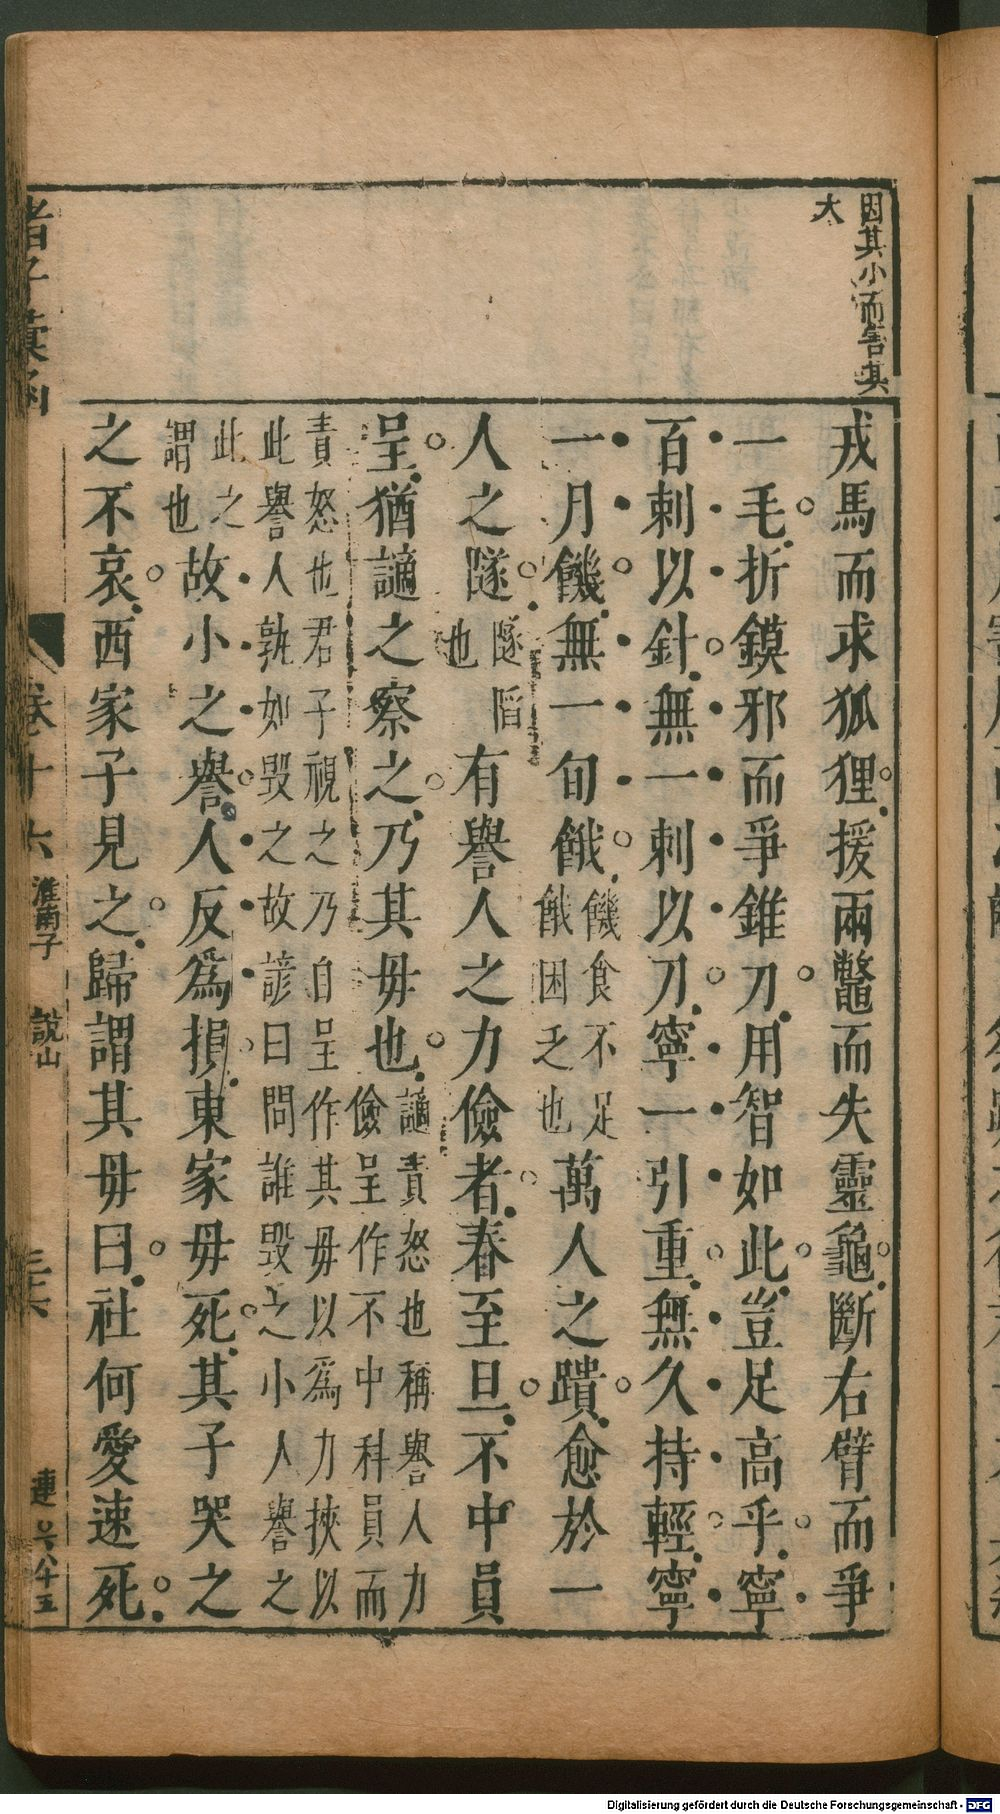 因其小而害其
大
戎馬而求狐狸援兩鼈而失靈龜斷右臂而爭
一毛折鏌邪而爭錐刀用智如此豈足高乎寧
百刺以針無一刺以刀寧一引重無久持輕寧
一月饑無一旬餓饑食不足
餓困乏也萬人之蹪愈於一
人之隧隧陷
也有譽人之力儉者舂至旦不中員
呈猶謫之察之乃其毋也謫責怒也稱譽人力
儉呈作不中科員而
責怒也君子視之乃自呈作其毋以爲力挾以
此譽人孰如毀之故諺曰問誰毀之小人譽之
此之
謂也故小之譽人反爲損東家毋死其子哭之
之不哀西家子見之歸謂其毋曰社何愛速死
諸子彙函
卷十六 淮南子 說山 三六 連 共八十五
Digitalisierung gefördert durch die Deutsche Forschungsgemeinschaft - DFG